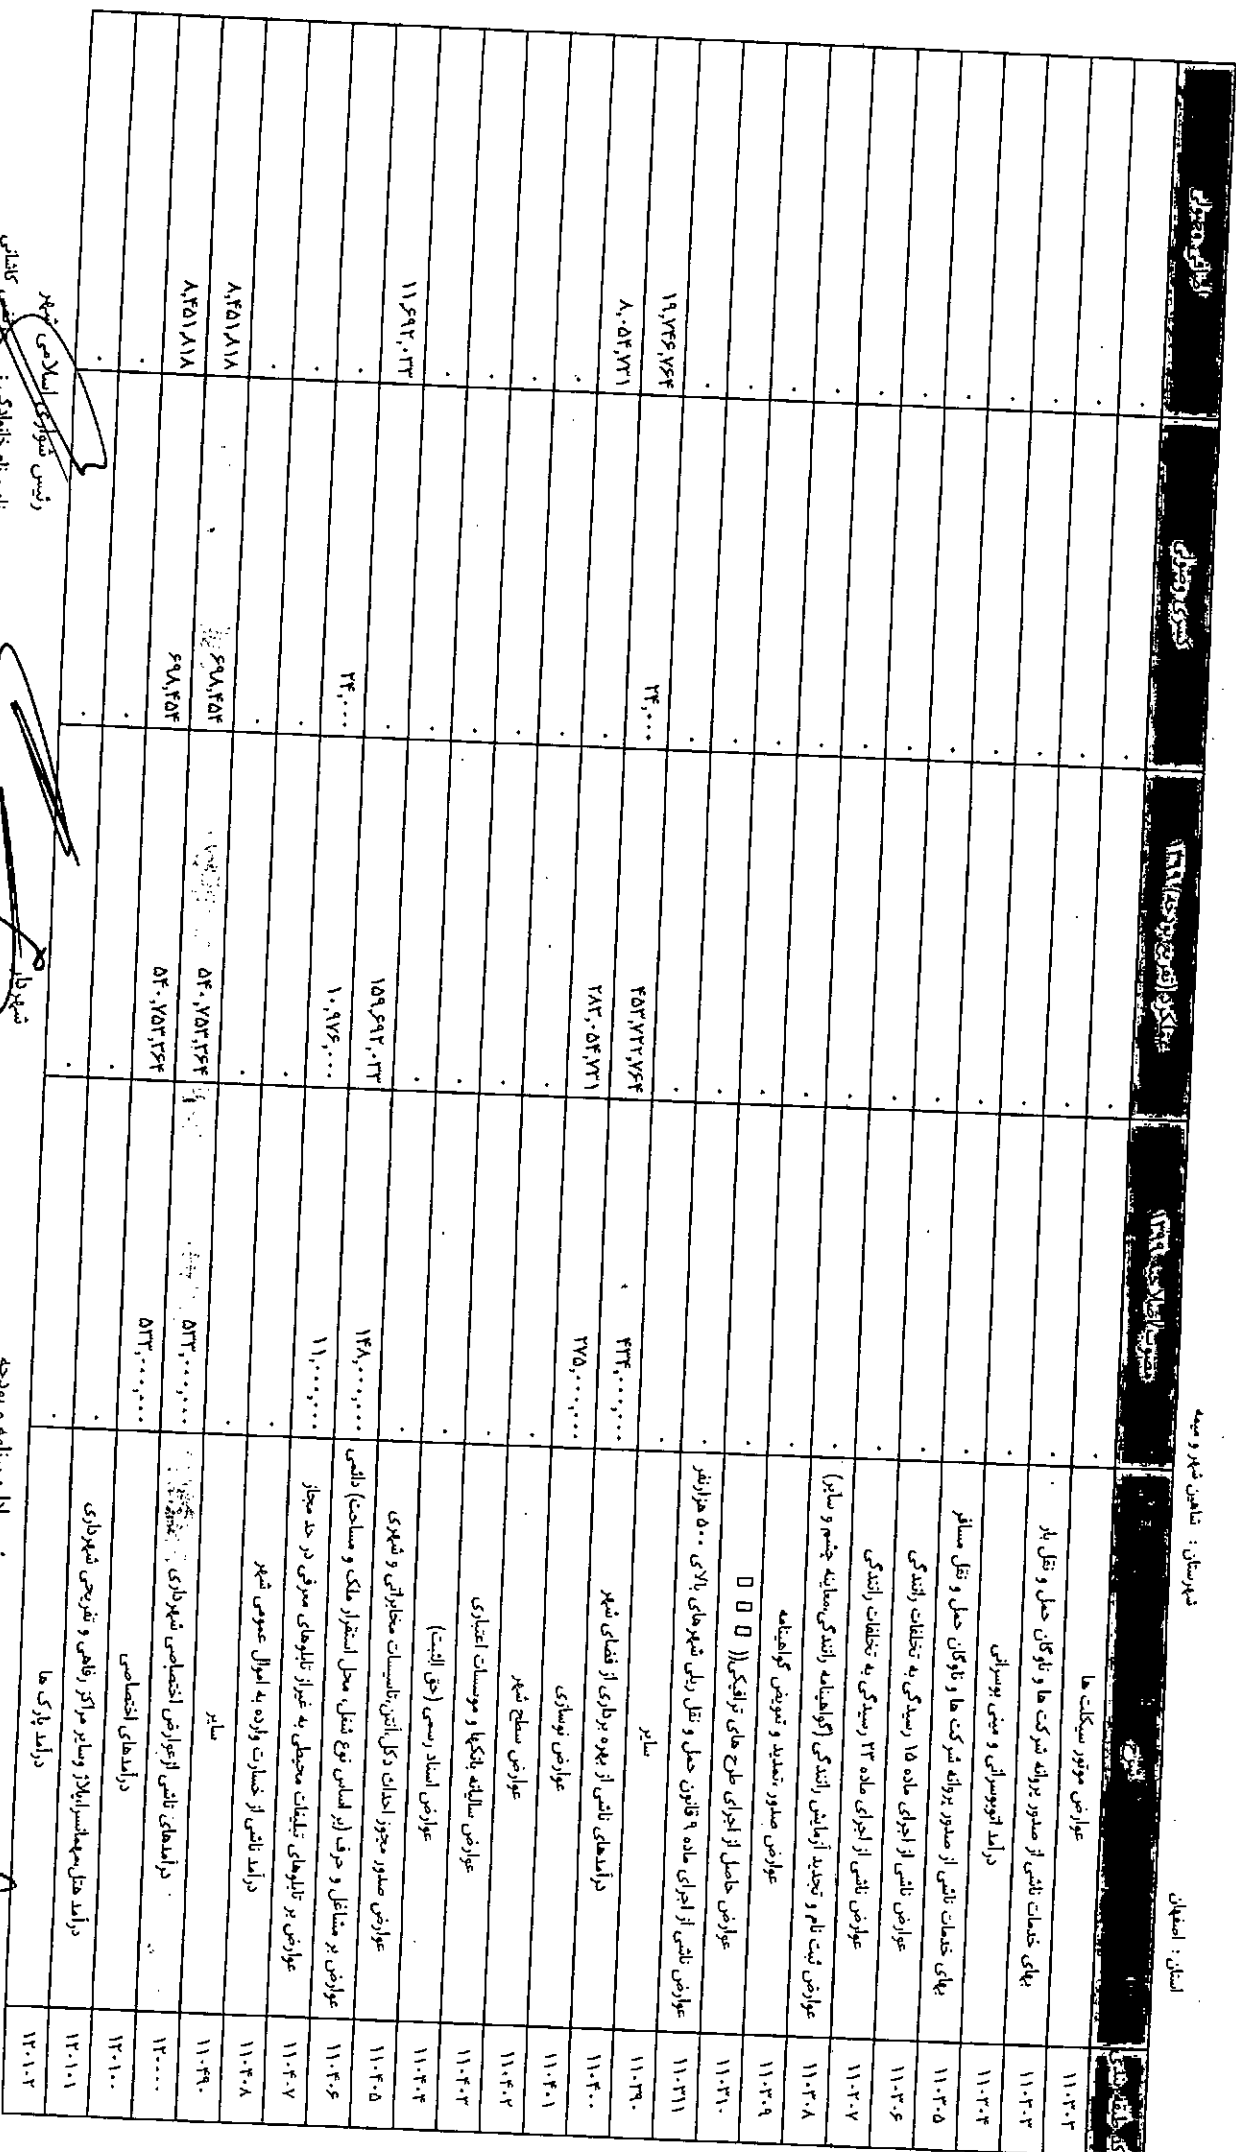 استان : اصفهان شهرستان : شاهین شهر و میمه
کد طبقه بندی شرح مصوب/اصلاحی ۱۳۹۹ عملکرد(تفریغ بودجه) ۱۳۹۹ کسری وصولی اضافی وصولی
۱۱۰۳۰۲ عوارض موتور سیکلت ها ۰ ۰ ۰ ۰
۱۱۰۳۰۳ بهای خدمات ناشی از صدور پروانه شرکت ها و ناوگان حمل و نقل بار ۰ ۰ ۰ ۰
۱۱۰۳۰۴ درآمد اتوبوسرانی و مینی بوسرانی ۰ ۰ ۰ ۰
۱۱۰۳۰۵ بهای خدمات ناشی از صدور پروانه شرکت ها و ناوگان حمل و نقل مسافر ۰ ۰ ۰ ۰
۱۱۰۳۰۶ عوارض ناشی از اجرای ماده ۱۵ رسیدگی به تخلفات رانندگی ۰ ۰ ۰ ۰
۱۱۰۳۰۷ عوارض ناشی از اجرای ماده ۲۳ رسیدگی به تخلفات رانندگی ۰ ۰ ۰ ۰
۱۱۰۳۰۸ عوارض ثبت نام و تجدید آزمایش رانندگی (گواهینامه رانندگی،معاینه چشم و سایر) ۰ ۰ ۰ ۰
۱۱۰۳۰۹ عوارض صدور ،تمدید و تعویض گواهینامه ۰ ۰ ۰ ۰
۱۱۰۳۱۰ عوارض حاصل از اجرای طرح های ترافیکی(( ۰ ۰ ۰ ۰
۱۱۰۳۱۱ عوارض ناشی از اجرای ماده ۹ قانون حمل و نقل ریلی شهرهای بالای ۵۰۰ هزارنفر ۰ ۰ ۰ ۰
۱۱۰۳۹۰ سایر ۰ ۰ ۰ ۰
۱۱۰۴۰۰ درآمدهای ناشی از بهره برداری از فضای شهر ۴۳۴,۰۰۰,۰۰۰ ۴۵۳,۷۲۲,۷۶۴ ۲۴,۰۰۰ ۱۹,۷۴۶,۷۶۴
۱۱۰۴۰۱ عوارض نوسازی ۲۷۵,۰۰۰,۰۰۰ ۲۸۳,۰۵۴,۷۳۱ ۰ ۸,۰۵۴,۷۳۱
۱۱۰۴۰۲ عوارض سطح شهر ۰ ۰ ۰ ۰
۱۱۰۴۰۳ عوارض سالیانه بانکها و موسسات اعتباری ۰ ۰ ۰ ۰
۱۱۰۴۰۴ عوارض اسناد رسمی (حق الثبت) ۰ ۰ ۰ ۰
۱۱۰۴۰۵ عوارض صدور مجوز احداث دکل،آنتن،تاسیسات مخابراتی و شهری ۰ ۰ ۰ ۰
۱۱۰۴۰۶ عوارض بر مشاغل و حرف (بر اساس نوع شغل، محل استقرار ملک و مساحت) دائمی ۱۴۸,۰۰۰,۰۰۰ ۱۵۹,۶۹۲,۰۳۳ ۰ ۱۱,۶۹۲,۰۳۳
۱۱۰۴۰۷ عوارض بر تابلوهای تبلیغات محیطی به غیراز تابلوهای معرفی در حد مجاز ۱۱,۰۰۰,۰۰۰ ۱۰,۹۷۶,۰۰۰ ۲۴,۰۰۰ ۰
۱۱۰۴۰۸ درآمد ناشی از خسارت وارده به اموال عمومی شهر ۰ ۰ ۰ ۰
۱۱۰۴۹۰ سایر ۰ ۰ ۰ ۰
۱۲۰۰۰۰ درآمدهای ناشی ازعوارض اختصاصی شهرداری ۵۳۳,۰۰۰,۰۰۰ ۵۴۰,۷۵۳,۳۶۴ ۶۹۸,۴۵۴ ۸,۴۵۱,۸۱۸
۱۲۰۱۰۰ درآمدهای اختصاصی ۵۳۳,۰۰۰,۰۰۰ ۵۴۰,۷۵۳,۳۶۴ ۶۹۸,۴۵۴ ۸,۴۵۱,۸۱۸
۱۲۰۱۰۱ درآمد هتل،مهمانسرا،پلاژ وسایر مراکز رفاهی و تفریحی شهرداری ۰ ۰ ۰ ۰
۱۲۰۱۰۲ درآمد پارک ها ۰ ۰ ۰ ۰
شهردار رئیس شورای اسلامی شهر